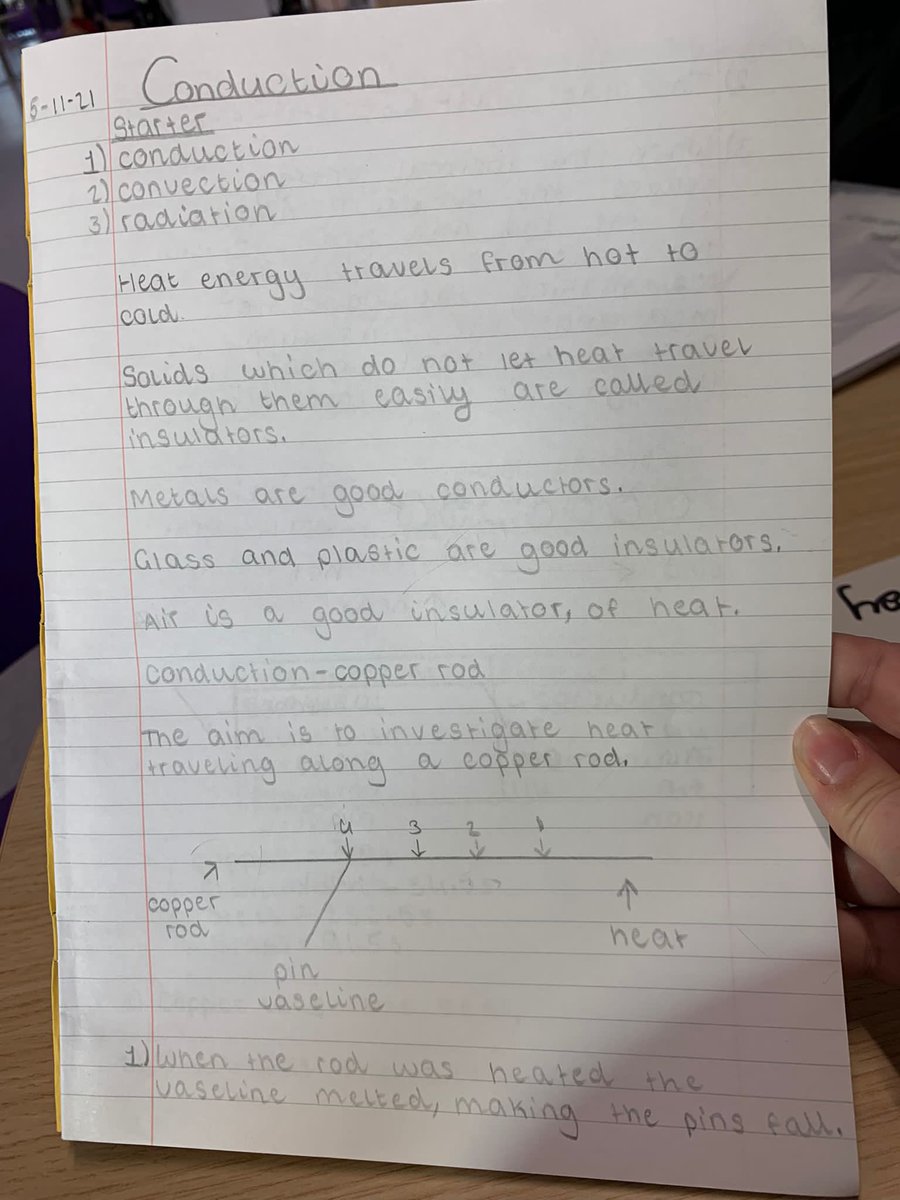 Conduction
5-11-21
Starter
1) conduction
2) convection
3) radiation
Heat energy travels from hot to
cold.
Solids which do not let heat travel
through them easily are called
insulators.
Metals are good conductors.
Glass and plastic are good insulators.
Air is a good insulator, of heat.
conduction - copper rod
The aim is to investigate heat
traveling along a copper rod.
4 3 2 1
copper
rod
heat
pin
vaseline
1) When the rod was heated the
vaseline melted, making the pins fall.